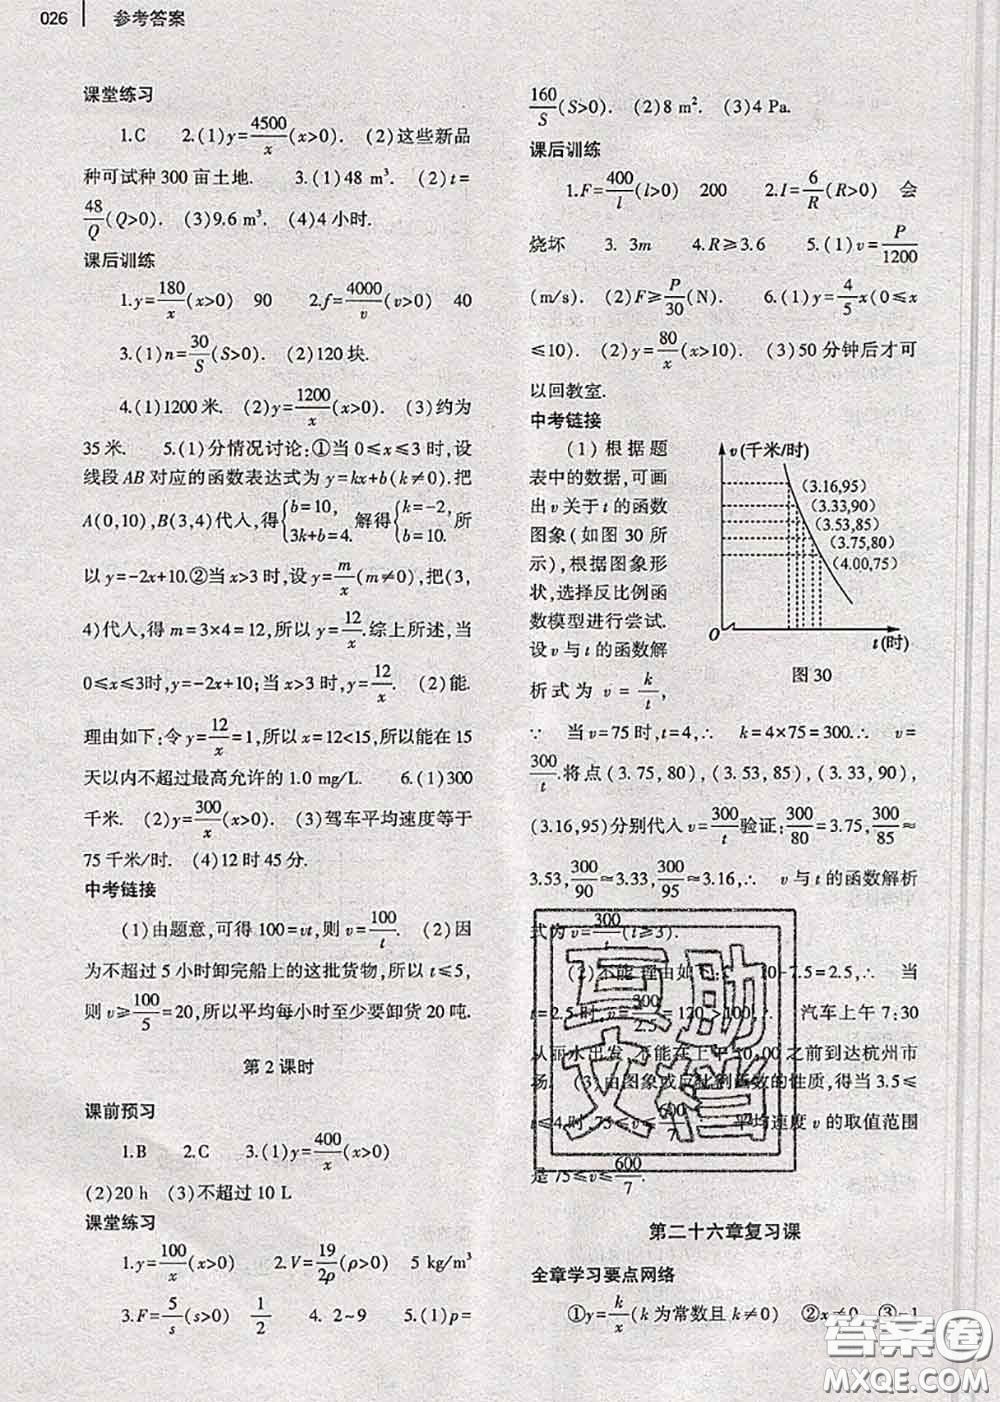 026 参考答案
课堂练习
1.C 2.(1)y=4500/x(x>0). (2)这些新品
种可试种300亩土地. 3.(1)48 m³. (2)t=
48/Q(Q>0). (3)9.6 m³. (4)4小时.
课后训练
1.y=180/x(x>0) 90 2.f=4000/v(v>0) 40
3.(1)n=30/S(S>0). (2)120块.
4.(1)1200米. (2)y=1200/x(x>0). (3)约为
35米. 5.(1)分情况讨论:①当0≤x≤3时,设
线段AB对应的函数表达式为y=kx+b(k≠0).把
A(0,10),B(3,4)代入,得{b=10, 3k+b=4.解得{k=-2, b=10.所
以y=-2x+10.②当x>3时,设y=m/x(m≠0),把(3,
4)代入,得m=3×4=12,所以y=12/x.综上所述,当
0≤x≤3时,y=-2x+10;当x>3时,y=12/x. (2)能.
理由如下:令y=12/x=1,所以x=12<15,所以能在15
天以内不超过最高允许的1.0 mg/L. 6.(1)300
千米. (2)y=300/x(x>0). (3)驾车平均速度等于
75千米/时. (4)12时45分.
中考链接
(1)由题意,可得100=vt,则v=100/t. (2)因
为不超过5小时卸完船上的这批货物,所以t≤5,
则v≥100/5=20,所以平均每小时至少要卸货20吨.
第2课时
课前预习
1.B 2.C 3.(1)y=400/x(x>0)
(2)20 h (3)不超过10 L
课堂练习
1.y=100/x(x>0) 2.V=19/2ρ(ρ>0) 5 kg/m³
3.F=5/s(s>0) 1/2 4. 2~9 5.(1)p=
160/S(S>0). (2)8 m². (3)4 Pa.
课后训练
1.F=400/l(l>0) 200 2.I=6/R(R>0) 会
烧坏 3. 3m 4.R≥3.6 5.(1)v=P/1200
(m/s). (2)F≥P/30(N). 6.(1)y=4/5x(0≤x
≤10). (2)y=80/x(x>10). (3)50分钟后才可
以回教室.
中考链接
(1)根据题
表中的数据,可画
出v关于t的函数
图象(如图30所
示),根据图象形
状,选择反比例函
数模型进行尝试.
设v与t的函数解
析式为v=k/t,
v(千米/时)
(3.16,95)
(3.33,90)
(3.53,85)
(3.75,80)
(4.00,75)
O
t(时)
图30
∵ 当v=75时,t=4,∴ k=4×75=300.∴ v=
300/t.将点(3.75,80),(3.53,85),(3.33,90),
(3.16,95)分别代入v=300/t验证:300/80=3.75,300/85≈
3.53,300/90≈3.33,300/95≈3.16,∴ v与t的函数解析
式为v=300/t(t≥3).
(2)不能 理由如下:∵ 10-7.5=2.5,∴ 当
t=2.5时,v=300/2.5=120>100,∴ 汽车上午7:30
从丽水出发,不能在上午10:00之前到达杭州市
场. (3)由图象或反比例函数的性质,得当3.5≤
t≤4时,75≤v≤600/7. 平均速度v的取值范围
是75≤v≤600/7.
互助文档
第二十六章复习课
全章学习要点网络
①y=k/x(k为常数且k≠0) ②x≠0 ③-1
答案圈
MXQE.COM